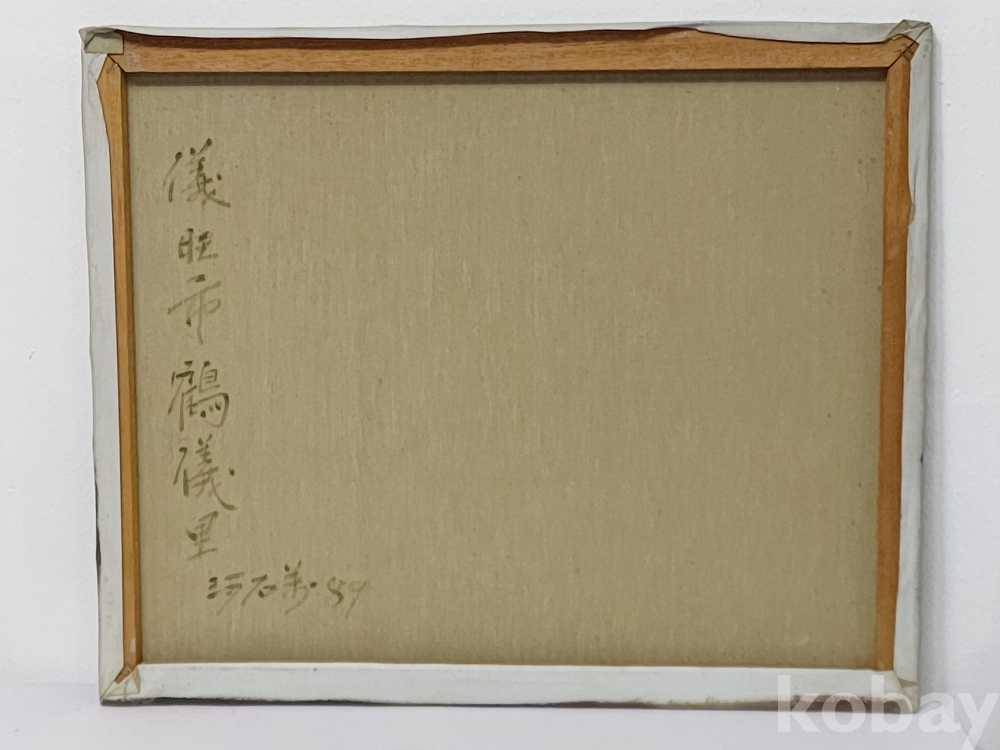 儀旺市鶴儀里
河石 89
kobay